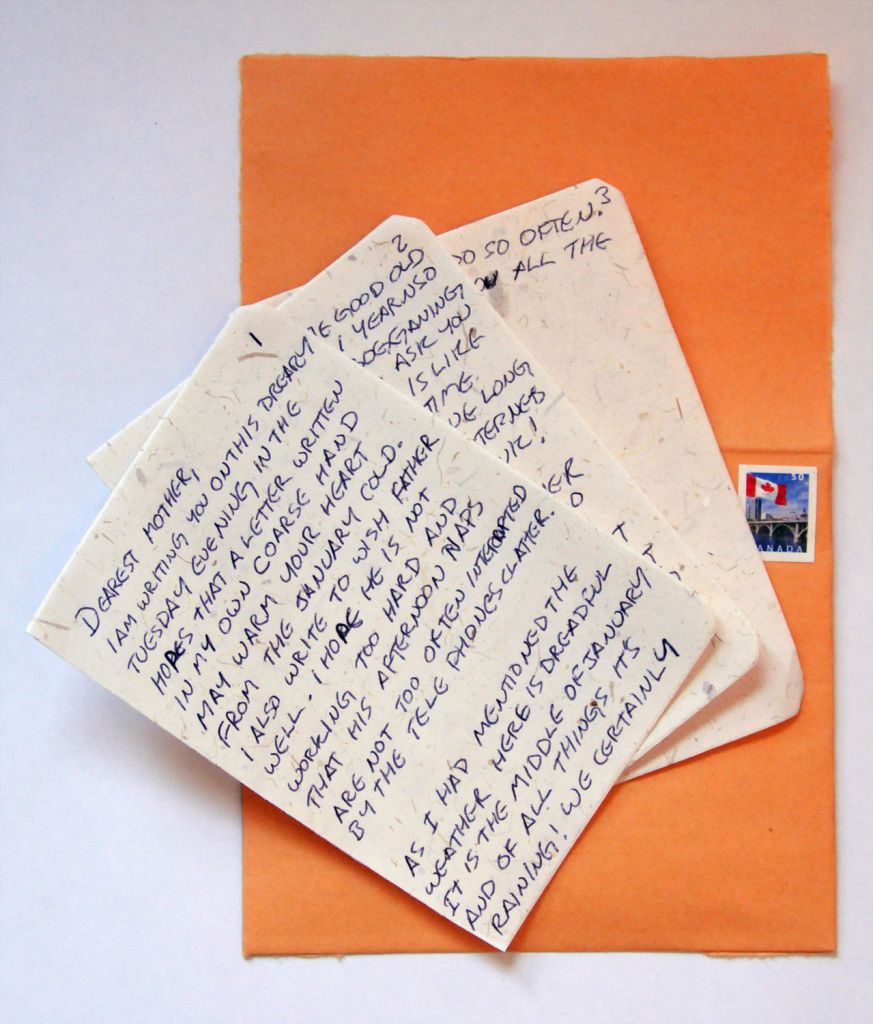 1
DEAREST MOTHER,
I AM WRITING YOU ON THIS DREARY
TUESDAY EVENING IN THE
HOPES THAT A LETTER WRITTEN
IN MY OWN COARSE HAND
MAY WARM YOUR HEART
FROM THE JANUARY COLD.
I ALSO WRITE TO WISH FATHER
WELL. I HOPE HE IS NOT
WORKING TOO HARD AND
THAT HIS AFTERNOON NAPS
ARE NOT TOO OFTEN INTERRUPTED
BY THE TELE PHONES CLATTER.
AS I HAD MENTIONED THE
WEATHER HERE IS DREADFUL
IT IS THE MIDDLE OF JANUARY
AND OF ALL THINGS, IT'S
RAINING! WE CERTAINLY
2
GOOD OLD
ASK YOU
IS LIKE
TIME
LONG
3
DO SO OFTEN.
ALL THE
50
CANADA